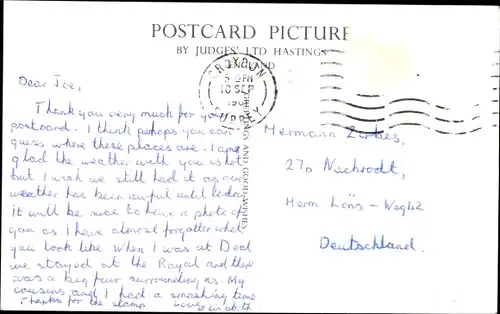 POSTCARD PICTURE
BY JUDGES' LTD HASTINGS
ENGLAND
CROYDON
5 PM
10 SEP
SURREY
GREETINGS AND GOOD WISHES
Dear Joe,
Thank you very much for your
postcard. I think perhaps you can
guess where these places are. I am
glad the weather with you is hot
but I wish we still had it as our
weather has been awful until today
it will be nice to have a photo of
you as I have almost forgotten what
you look like When I was at Deal
we stayed at the Royal and there
was a big fair surrounding us. My
cousins and I had a smashing time
Thanks for the stamp Love
Hermann
270 Nachrodt,
Herm Löns-Weg 42
Deutschland.